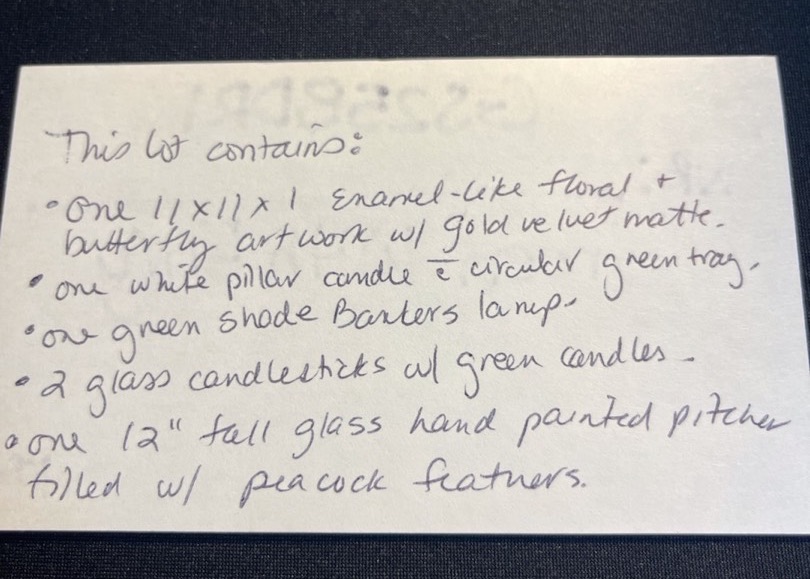 This lot contains:
• one 11x11x1 Enamel-like floral +
butterfly artwork w/ gold velvet matte.
• one white pillar candle c̄ circular green tray.
• one green shade Bankers lamp.
• 2 glass candlesticks w/ green candles.
• one 12" tall glass hand painted pitcher
filled w/ peacock feathers.